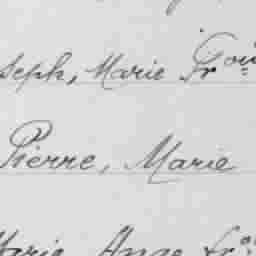 seph, Marie Frois
Pierre, Marie
Marie Ange fro